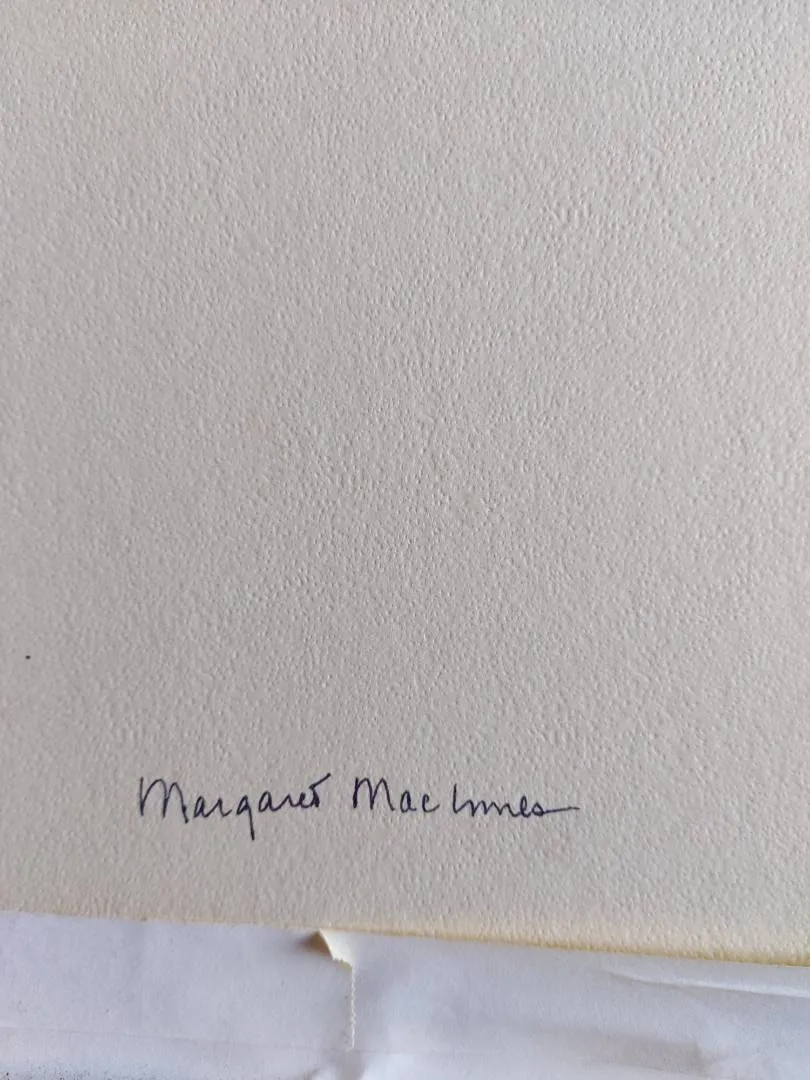 Margaret MacInnes